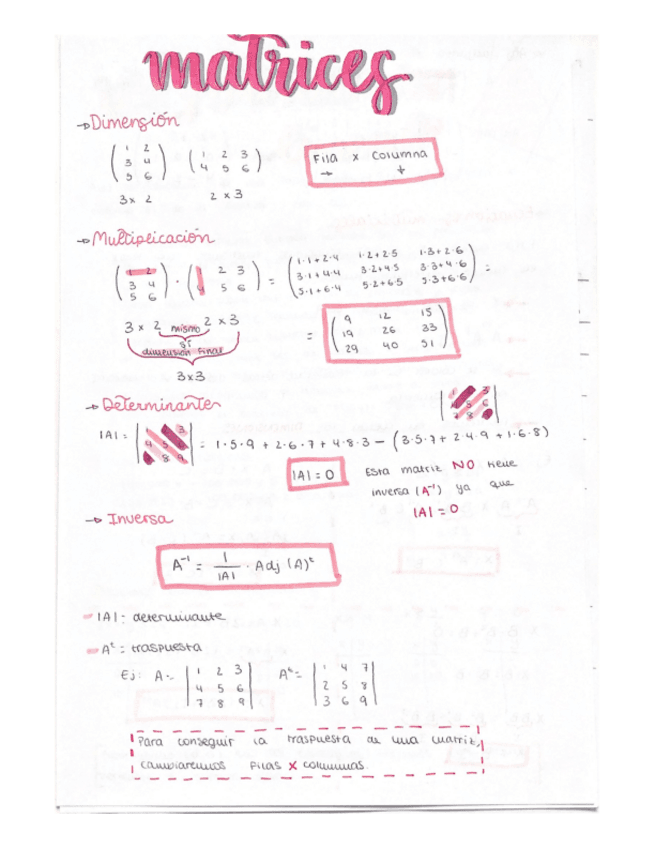 matrices
→Dimensión
( 1 2 ) ( 1 2 3 ) Fila x Columna
( 3 4 ) ( 4 5 6 ) → ↓
( 5 6 )
3x 2 2 x 3
→Multiplicación
( 1 2 ) · ( 1 2 3 ) = ( 1·1+2·4 1·2+2·5 1·3+2·6 ) =
( 3 4 ) ( 4 5 6 ) ( 3·1+4·4 3·2+4·5 3·3+4·6 )
( 5 6 ) ( 5·1+6·4 5·2+6·5 5·3+6·6 )
3 x 2 mismo 2 x 3
sí
dimensión final
3x3
= ( 9 12 15 )
( 19 26 33 )
( 29 40 51 )
→ Determinante
|A| = | 3 | = 1·5·9 + 2·6·7 + 4·8·3 − (3·5·7 + 2·4·9 + 1·6·8)
| 4 5 |
| 8 9 |
|A| = 0 Esta matriz NO tiene
inversa (A⁻¹) ya que
|A| = 0
→ Inversa
A⁻¹ = 1/|A| · Adj (A)ᵗ
|A| = determinante
Aᵗ = traspuesta
Ej: A= | 1 2 3 | Aᵗ= | 1 4 7 |
| 4 5 6 | | 2 5 8 |
| 7 8 9 | | 3 6 9 |
Para conseguir la traspuesta de una matriz,
cambiaremos filas x columnas.